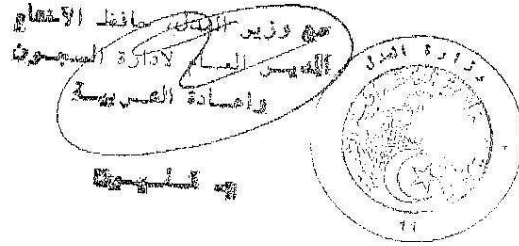 عن وزير العدل، حافظ الأختام
المدير العام لإدارة السجون
وإعادة التربية
م. فليون
وزارة العدل
11